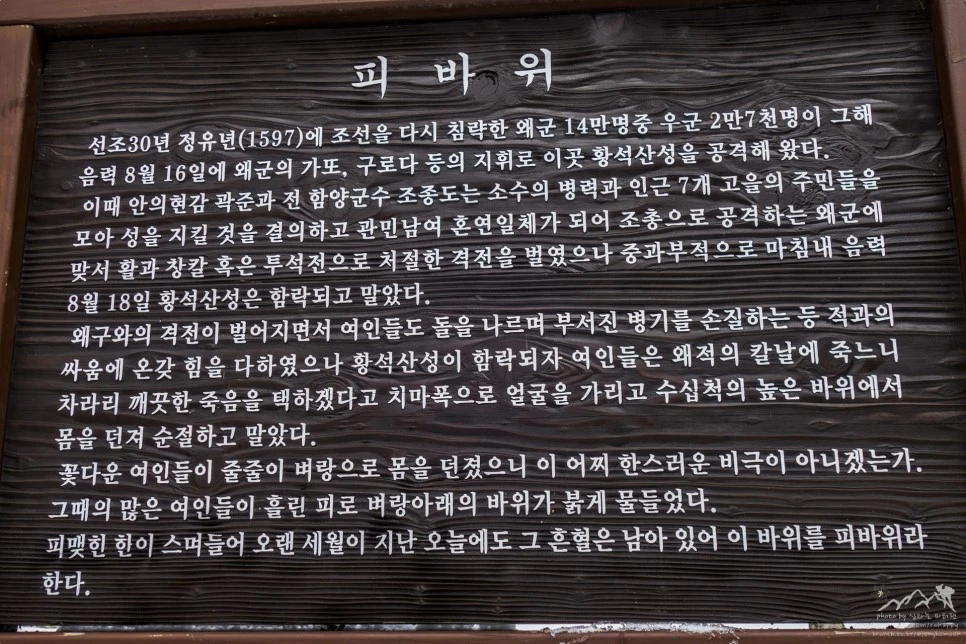 피 바 위
선조30년 정유년(1597)에 조선을 다시 침략한 왜군 14만명중 우군 2만7천명이 그해
음력 8월 16일에 왜군의 가또, 구로다 등의 지휘로 이곳 황석산성을 공격해 왔다.
이때 안의현감 곽준과 전 함양군수 조종도는 소수의 병력과 인근 7개 고을의 주민들을
모아 성을 지킬 것을 결의하고 관민남여 혼연일체가 되어 조총으로 공격하는 왜군에
맞서 활과 창칼 혹은 투석전으로 처절한 격전을 벌였으나 중과부적으로 마침내 음력
8월 18일 황석산성은 함락되고 말았다.
왜구와의 격전이 벌어지면서 여인들도 돌을 나르며 부서진 병기를 손질하는 등 적과의
싸움에 온갖 힘을 다하였으나 황석산성이 함락되자 여인들은 왜적의 칼날에 죽느니
차라리 깨끗한 죽음을 택하겠다고 치마폭으로 얼굴을 가리고 수십척의 높은 바위에서
몸을 던져 순절하고 말았다.
꽃다운 여인들이 줄줄이 벼랑으로 몸을 던졌으니 이 어찌 한스러운 비극이 아니겠는가.
그때의 많은 여인들이 흘린 피로 벼랑아래의 바위가 붉게 물들었다.
피맺힌 한이 스며들어 오랜 세월이 지난 오늘에도 그 흔혈은 남아 있어 이 바위를 피바위라
한다.
photo by